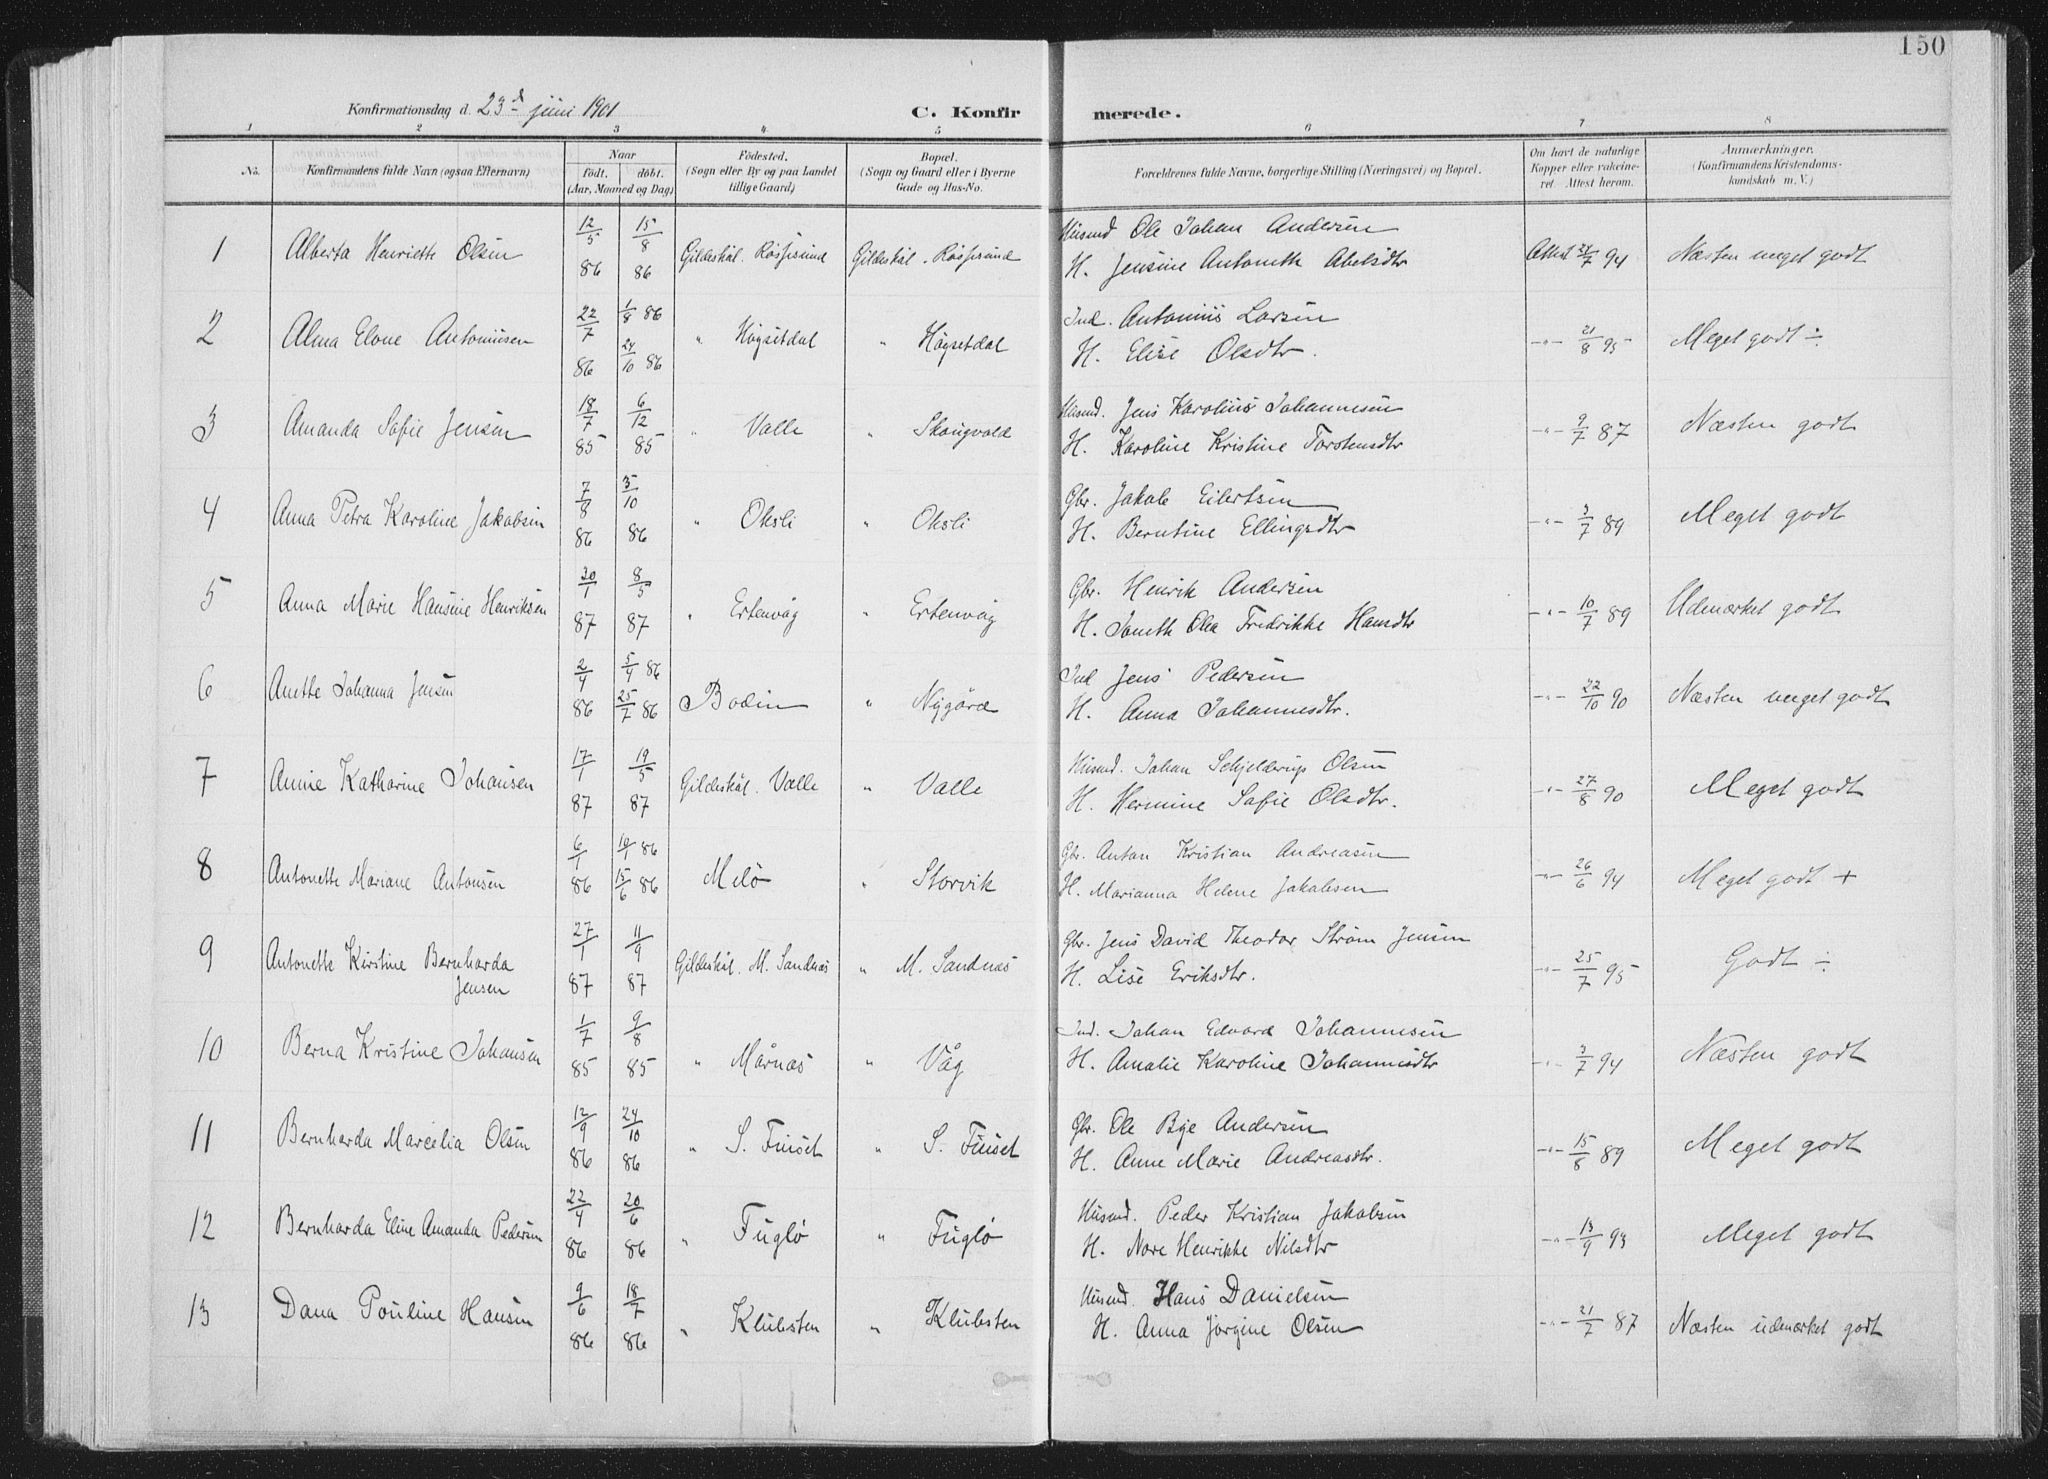 150
Konfirmationsdag d. 23d juni 1901
C. Konfirmerede.
1 2 3 4 5 6 7 8
No. Konfirmandens fulde Navn (ogsaa Efternavn) Naar født. døbt. (Aar, Maaned og Dag) Fødested. (Sogn eller By og paa Landet tillige Gaard) Bopæl. (Sogn og Gaard eller i Byerne Gade og Hus-No. Forældrenes fulde Navne, borgerlige Stilling (Næringsvei) og Bopæl. Om havt de naturlige Kopper eller vakcineret. Attest herom. Anmærkninger. (Konfirmandens Kristendomskundskab m. V.)
1 Alberta Henriette Olsen 12/5 86 15/8 86 Gildeskål. Røssjsund Gildeskål. Røssjsund Husmd Ole Johan Andersen
H. Jensine Antoneth Abelsdtr Attest 24/7 94 Næsten meget godt
2 Alma Elone Antoniusen 22/7 86 1/8 86 24/10 86 " Høgsetdal " Høgsetdal Ind. Antonius Larsen
H. Elise Olsdtr. -"- 21/8 95 Meget godt ÷
3 Amanda Sofie Jensen 18/7 85 6/12 85 " Valle " Skaugvold Husmd. Jens Karolius Johannesen
H. Karoline Kristine Torstensdtr -"- 9/7 87 Næsten godt
4 Anna Petra Karoline Jakobsen 7/8 86 3/10 86 " Oksli " Oksli Gbr. Jakob Eilertsen
H. Berntine Ellingsdtr -"- 3/7 89 Meget godt
5 Anna Marie Hansine Henriksen 30/1 87 8/5 87 " Ertenvåg " Ertenvåg Gbr. Henrik Andersen
H. Joneth Olea Fredrikke Hansdtr -"- 10/7 89 Udmærket godt
6 Anette Johanna Jensen 2/4 86 5/4 86 25/7 86 Bodin " Nygård Ind Jens Pedersen
H. Anna Johannesdtr. -"- 22/10 90 Næsten meget godt
7 Annie Katharine Johansen 17/1 87 19/5 87 Gildeskål. Valle " Valle Husmd. Johan Schjelderup Olsen
H. Hermine Sofie Olsdtr. -"- 27/8 90 Meget godt
8 Antonette Mariane Antonsen 6/1 86 10/1 86 15/6 86 Melö " Storvik Gbr. Anton Kristian Andreasen
H. Marianna Helene Jakobsen -"- 26/6 94 Meget godt +
9 Antonette Kirstine Bernharda Jensen 27/1 87 11/9 87 Gildeskål. M. Sandnæs " M. Sandnæs Gbr. Jens David Theodor Strøm Jensen
H. Lise Eriksdtr. -"- 25/7 95 Godt ÷
10 Berna Kristine Johansen 1/7 85 9/8 85 " Mårnæs " Våg Ind. Johan Edvard Johannesen
H. Amalie Karoline Johannesdtr -"- 3/7 94 Næsten godt
11 Bernharda Marcelia Olsen 12/9 86 24/10 86 " S. Finset " S. Finset Gbr. Ole Bye Andersen
H. Anne Marie Andreasdtr. -"- 15/8 89 Meget godt
12 Bernharda Eline Amanda Pedersen 22/4 86 20/6 86 " Fuglø " Fuglø Husmd. Peder Kristian Jakobsen
H. Nore Henrikke Nilsdtr -"- 13/9 93 Meget godt
13 Dana Pouline Hansen 9/6 86 18/7 86 " Klubsten " Klubsten Husmd. Hans Danielsen
H. Anna Jørgine Olsen -"- 21/7 87 Næsten udmærket godt